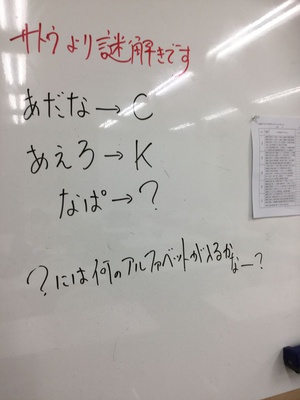 サトウより謎解きです
あだな→C
あえろ→K
なぱ→?
?には何のアルファベットが入るかなー?